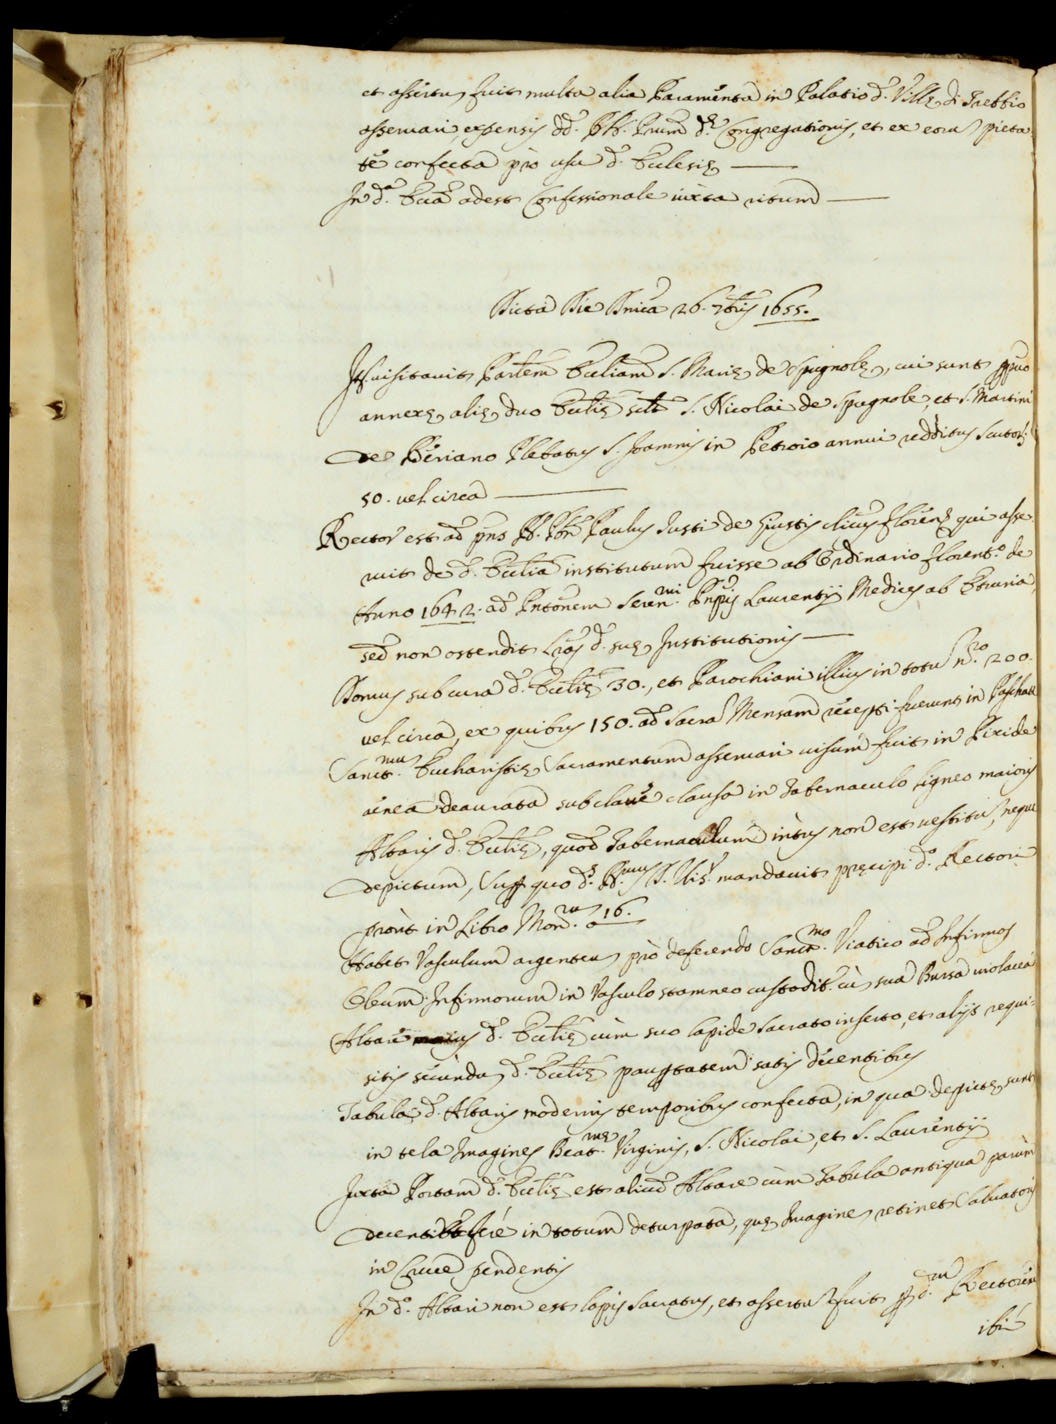 et assertum fuit multa alia Paramenta in Palatio d.ę Villę di Trebbio
asservari, expensis dd. PP. Prum d.ę Congregationis, et ex eorum pieta
te confecta pro usu d.ę Ecclesię
In d.a Eccła adest Confessionale iuxta ritum
Dicta Die Dnica 26. 7bris 1655.
Itē visitavit Parłem Ecclīam S. Marię de Spugnole, cui sunt
annexę alię duo Ecclīę scilt S. Nicolai de Spugnole, et S. Martini
de Beriano Plebatus S. Joannis in Petroio annui redditus Scutor;
50. vel circa
Rector est ad pñs Paulus Justi de Giustis clicus floren; qui asse
ruit de d. Ecclia institutum fuisse ab Ordinario florent.o de
Anno 1642. ad Pntōnem Seren.mi Pnpis Laurentij Medices ab Etruria,
sed non ostendit Lras d. suę Institutionis
Domus sub cura d. Ecclīę 30., et Parochiani illius in totu n.ro 200.
vel circa, ex quibus 150. ad Sacrā Mensam recepti fuerunt in Paschate
Sanct.mum Eucharistię Sacramentum asservari visum fuit in Pixide
ænea deaurata sub clave clausa in Tabernaculo ligneo maioris
Altaris d. Ecclīę, quod Tabernaculum intus non est vestitū, neque
depictum, Sup quo d.s mandavit pręcipi d.o Rectori
prout in Libro Mon.ru a 16.
Habet Vasculum argenteū pro deferendo Sanct.mo Viatico ad Infirmos
Oleum Infirmorum in Vasculo stamneo custodit. cū sua Bursa violacea
Altare maius d. Ecclīę cum suo lapide sacrato inserto, et alijs requi-
sitis secundū d. Ecclīę paupertatem satis decentibus
Tabula d. Altaris modernis temporibus confecta, in qua depictę sunt
in tela Imagines Beat.mę Virginis, S. Nicolai, et S. Laurentij
Juxta Portam d. Ecclīę est aliud Altare cum Tabula antiqua parum
decenti fere in totum deturpata, quę Imagine retinet Salvatoris
in Cruce pendentis
In d.o Altari non est lapis sacratus, et assertū fuit p d.um Rectorem
ibi